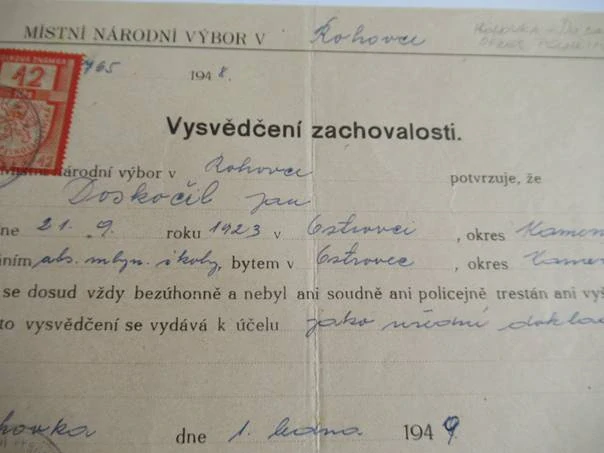 MÍSTNÍ NÁRODNÍ VÝBOR V Rohovci
KOLKOVÁ ZNÁMKA
12
765 194 8.
12
Vysvědčení zachovalosti.
Místní národní výbor v Rohovci potvrzuje, že
Doskočil Jan
ne 21. 9. roku 1923 v Ostrovci, okres Kamen
ním abs. mlyn. školy, bytem v Ostrovec, okres Kamen
se dosud vždy bezúhonně a nebyl ani soudně ani policejně trestán ani vyš
to vysvědčení se vydává k účelu jako úřední doklad
hovka dne 1. ledna 194 9